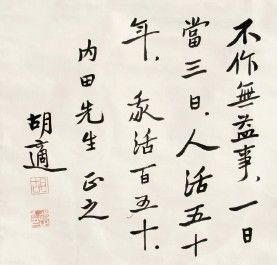 不作無益事，一日
當三日，人活五十
年，我活百五十。
內田先生正之
胡適